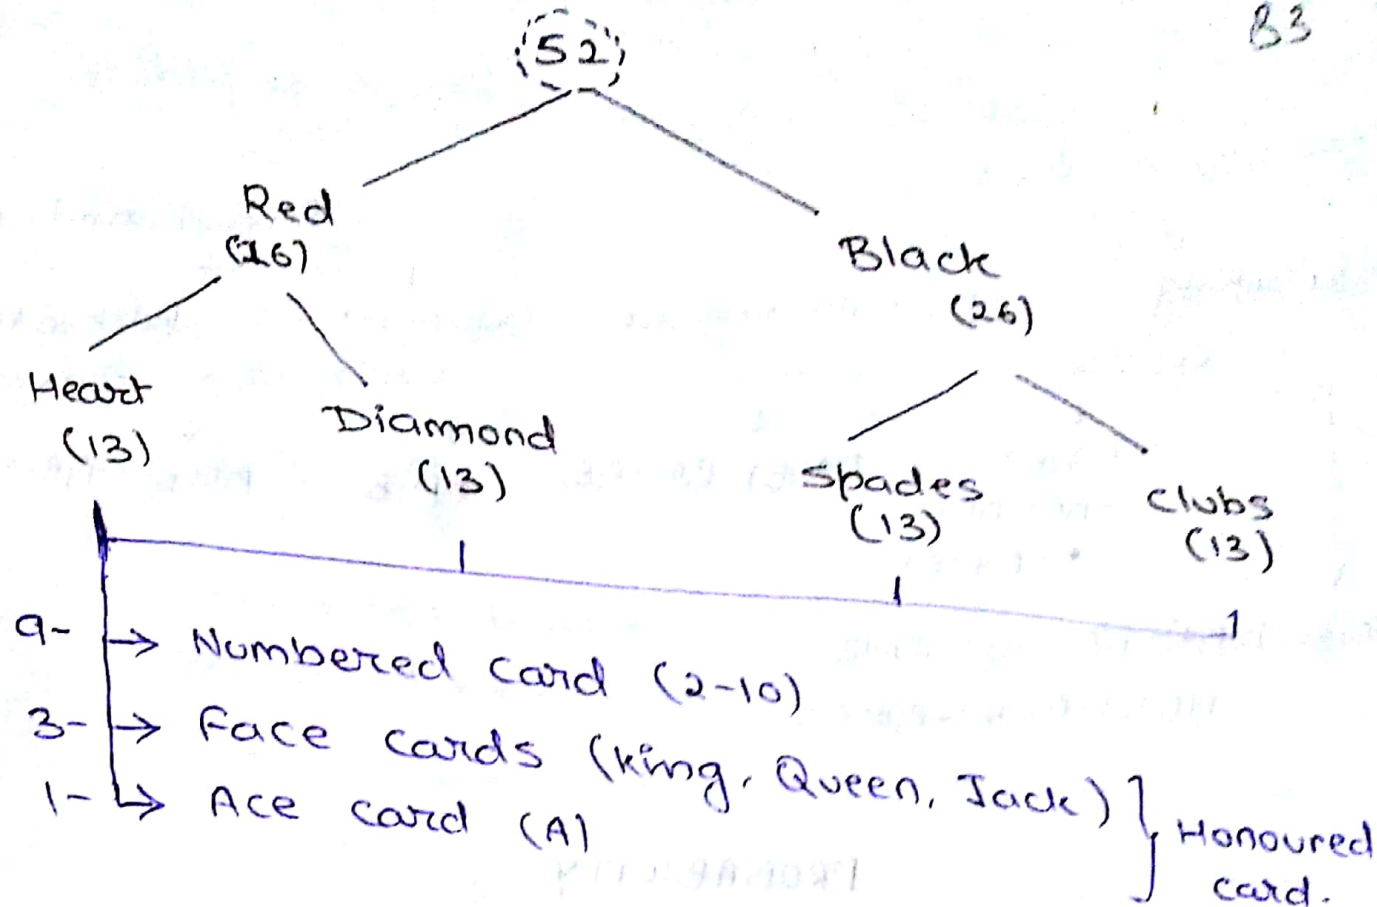 B3
52
Red
(26)
Black
(26)
Heart
(13)
Diamond
(13)
Spades
(13)
Clubs
(13)
9- → Numbered card (2-10)
3- → Face cards (King, Queen, Jack)
1- → Ace card (A)
Honoured
card.